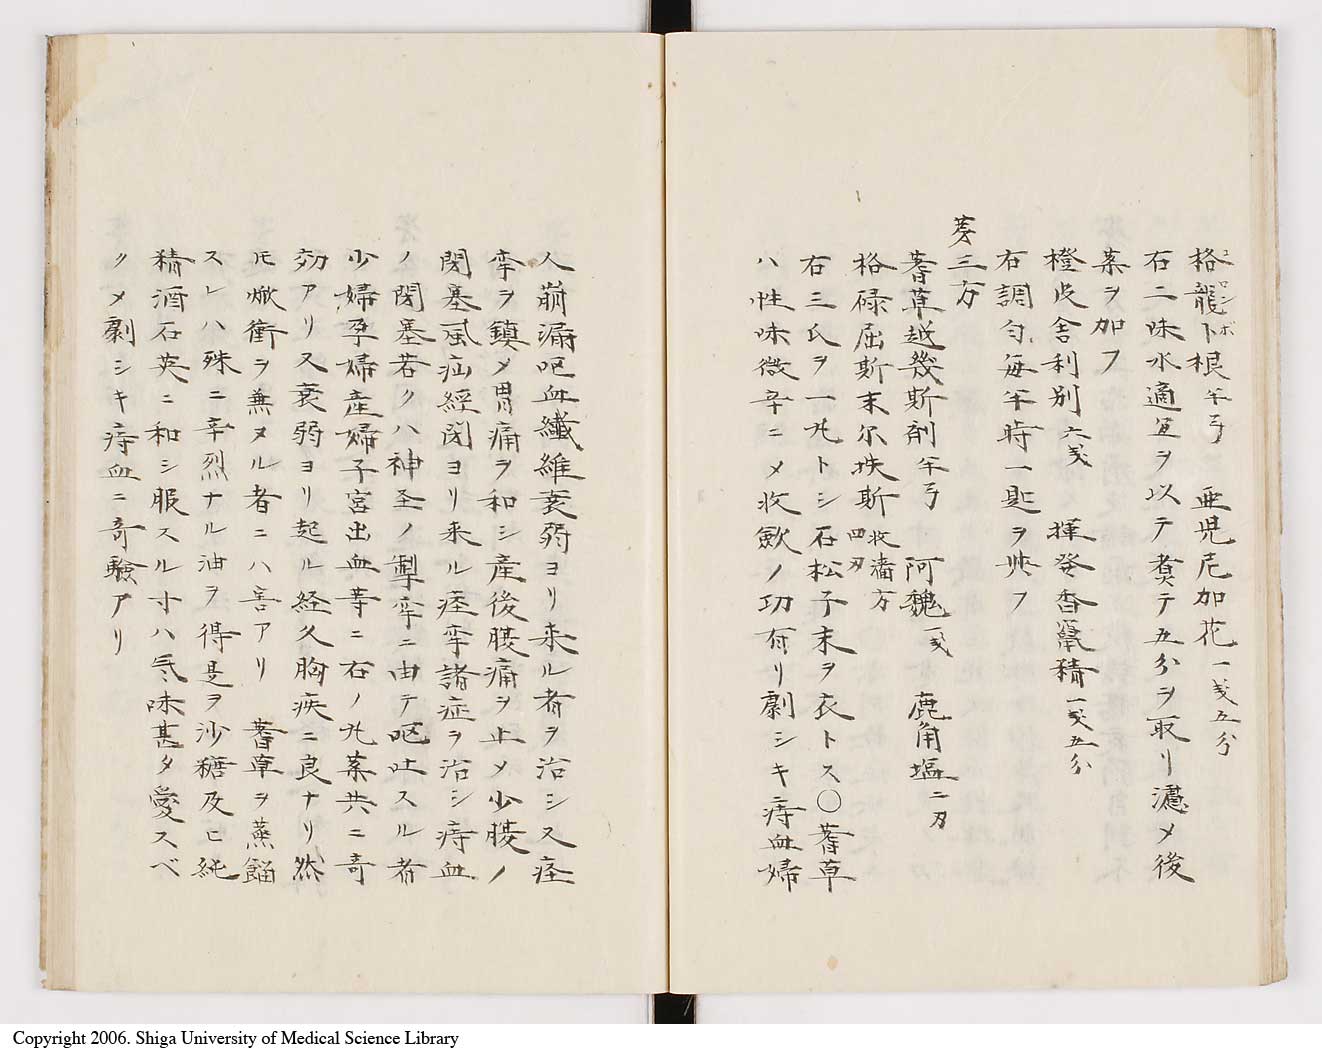 格龍卜根半弓 亜児尼加花一戔五分
コロンボ
石二味水適宜ヲ以テ煮テ五分ヲ取リ濾メ後
薬ヲ加フ
橙皮舎利別六戔 揮発香竄精一戔五分
右調匀毎半時一匙ヲ喫フ
第三方
蓍草越幾斯剤半弓 阿魏一戔 鹿角塩二刃
格碌屈斯末尓垤斯四刃 收瀒方
右三氏ヲ一丸トシ石松子末ヲ衣トス〇蓍草
ハ性味微辛ニメ收斂ノ功有リ劇シキ痔血婦
人崩漏嘔血纖維衰弱ヨリ来ル者ヲ治シ又痙
牽ヲ鎮メ胃痛ヲ和シ産後腹痛ヲ止メ少腹ノ
閉塞風疝経閉ヨリ来ル痙牽諸症ヲ治シ痔血
ノ閉塞若クハ神圣ノ掣牽ニ由テ嘔吐スル者
少婦孕婦産婦子宮出血等ニ右ノ丸薬共ニ奇
効アリ又衰弱ヨリ起ル経久胸疾ニ良ナリ然
𪜈焮衝ヲ兼ヌル者ニハ害アリ 蓍草ヲ蒸餾
スレハ殊ニ辛烈ナル油ヲ得是ヲ沙糖及ヒ純
精酒石英ニ和シ服スル寸ハ気味甚タ愛スベ
クメ劇シキ痔血ニ奇験アリ
Copyright 2006. Shiga University of Medical Science Library